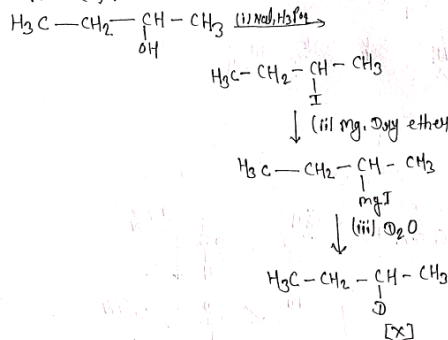 H3C — CH2 — CH — CH3 (i) NaI, H3PO4
OH
H3C – CH2 – CH – CH3
I
(ii) Mg. Dry ether
H3C — CH2 — CH – CH3
mgI
(iii) D2O
H3C – CH2 – CH – CH3
D
[X]